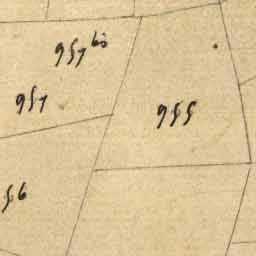 957 bis
957
955
56